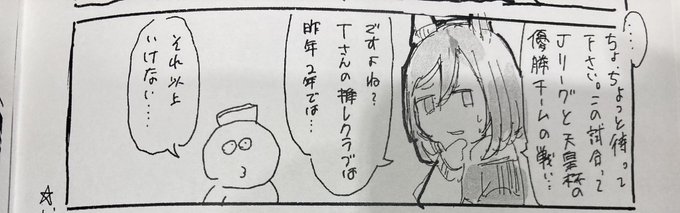 …
ちょ、ちょっと待って
下さい。この試合って
Jリーグと天皇杯の
優勝チームの戦い…
ですよね?
Tさんの推しクラブは
昨年2年では…
それ以上
いけない…
☆